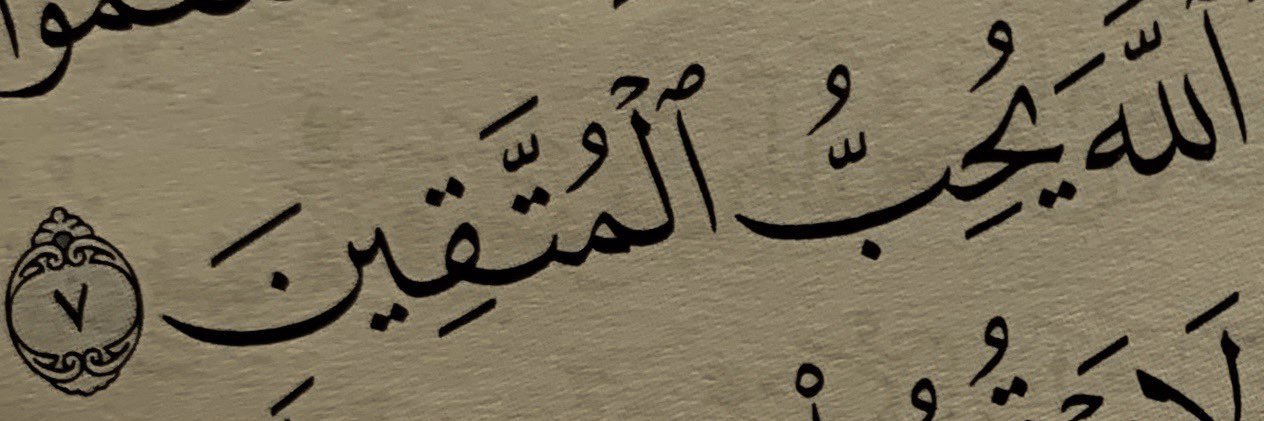 ٱللَّهَ يُحِبُّ ٱلْمُتَّقِينَ ٧
لَا